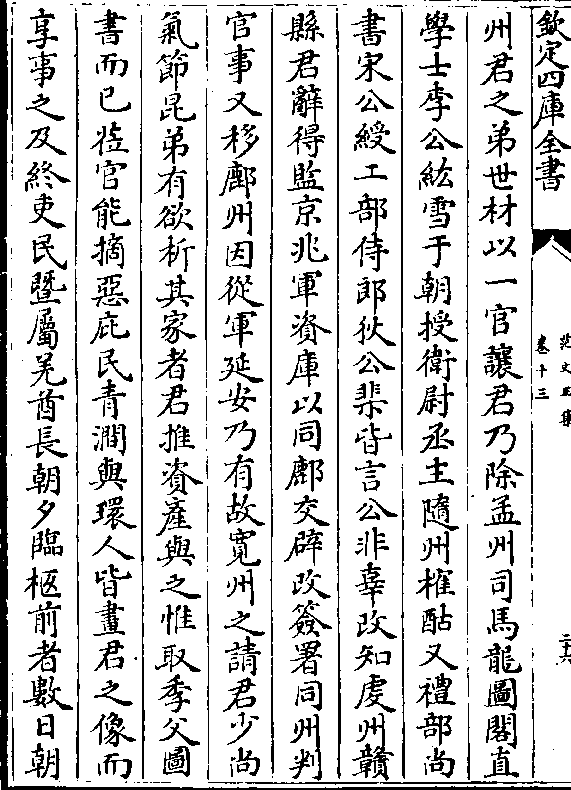 欽定四庫全書
范文正集
卷十三
二十六
州君之弟世材以一官讓君乃除孟州司馬龍圖閣直
學士李公紘雪于朝授衛尉丞主隨州榷酤又禮部尚
書宋公綬工部侍郎狄公棐皆言公非辜改知虔州贛
縣君辭得監京兆軍資庫以同鄜交辟改簽署同州判
官事又移鄜州因從軍延安乃有故寛州之請君少尚
氣節昆弟有欲析其家者君推資產與之惟取季父圖
書而已莅官能摘惡庇民青澗與環人皆畫君之像而
享事之及終吏民暨屬羌酋長朝夕臨柩前者數日朝